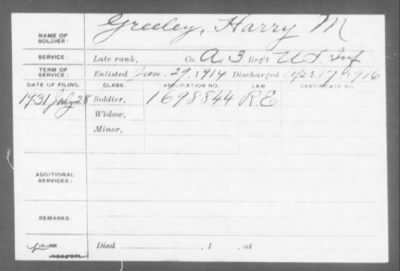 Greeley, Harry M
NAME OF SOLDIER:
SERVICE: Late rank, Co. A, 3 Reg't U S Inf
TERM OF SERVICE: Enlisted Jan. 29, 1914 Discharged 17, 1916
DATE OF FILING. CLASS. APPLICATION NO. LAW. CERTIFICATE NO.
1931 July 28 Soldier, 1698844 R.E
Widow,
Minor,
ADDITIONAL SERVICES:
REMARKS:
Died , 1 , at